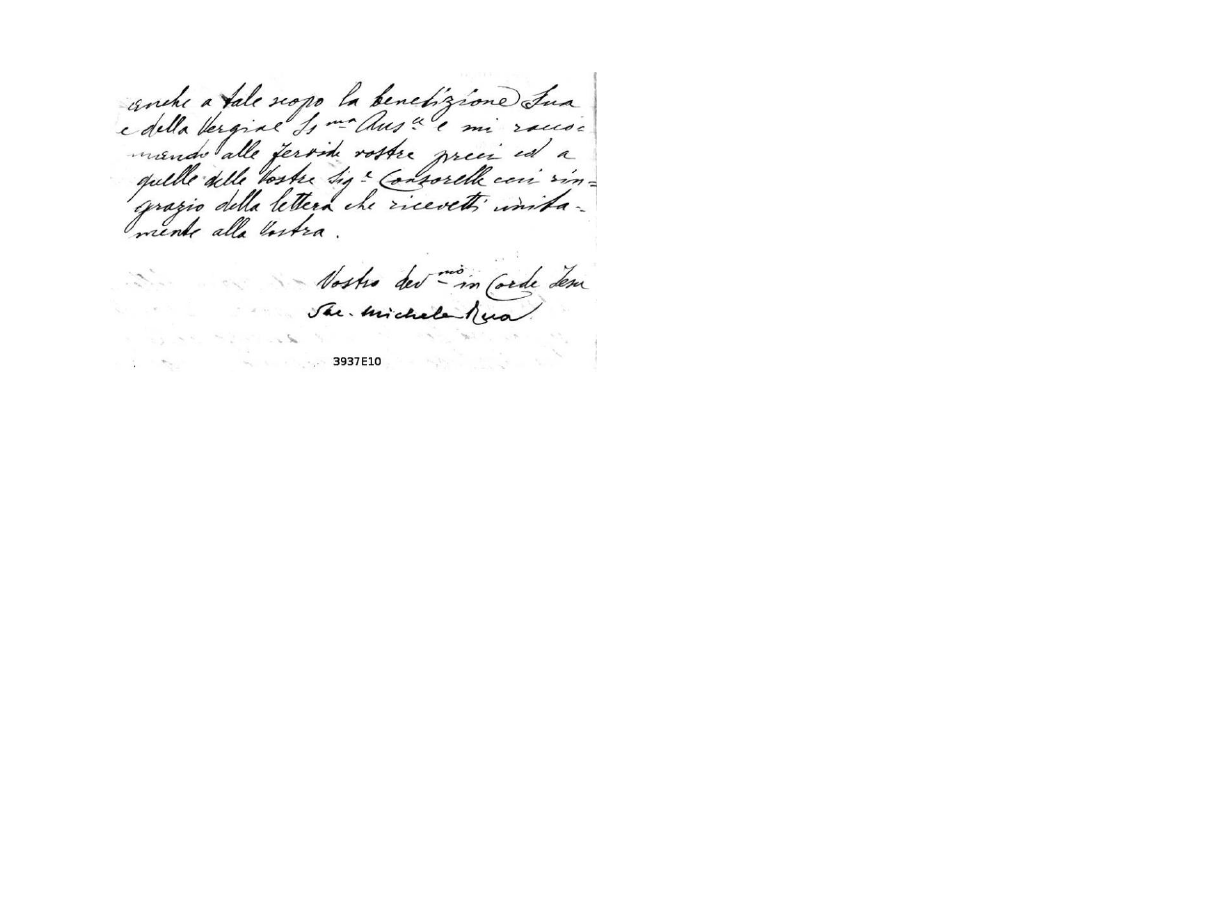 anche a tale scopo la benedizione Sua
e della Vergine SS.ma Aus.e e mi racco-
mando alle fervide vostre preci ed a
quelle delle Vostre Sig.e Consorelle cui rin=
grazio della lettera che ricevetti unita-
mente alla Vostra.
Vostro dev.mo in Corde Jesu
Sac. Michele Rua
3937E10